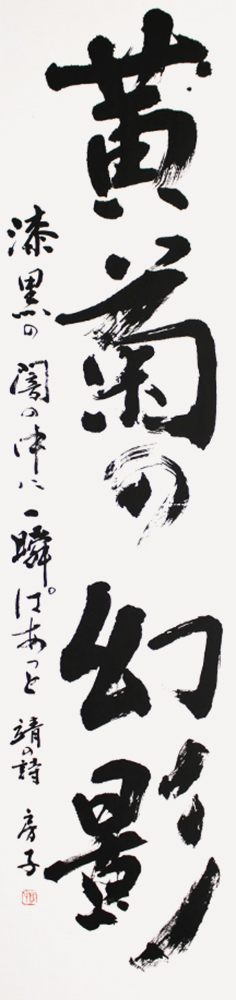 黄菊の幻影
漆黒の闇の中に一瞬ぱあっと 靖の詩 房子